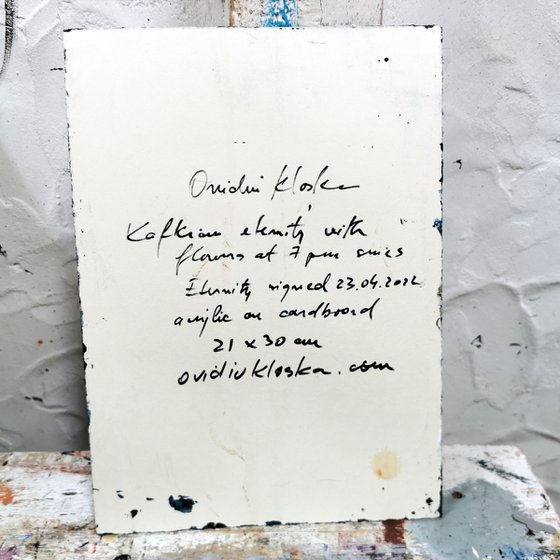 Ovidiu Kloska
Kafkian eternity with
flowers at 7 pm series
Eternity signed 23.04.2022
acrylic on cardboard
21 x 30 cm
ovidiukloska.com